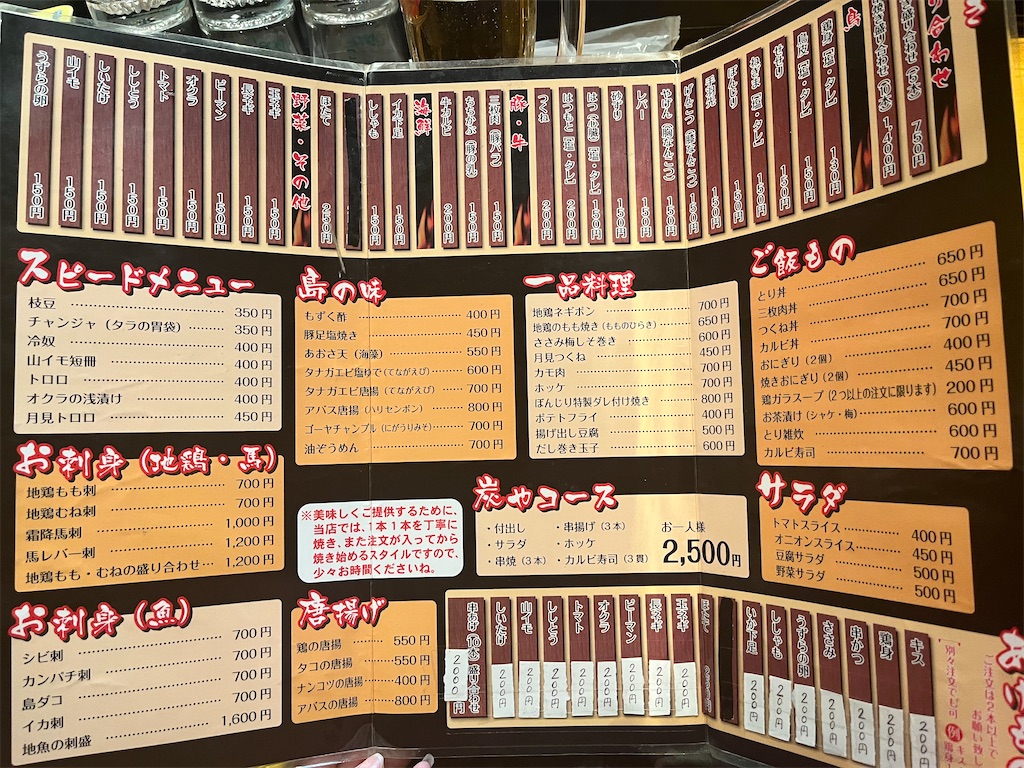 の合わせ
750円
1,400円
鳥
鶏身［塩・タレ］ 130円
鳥皮［塩・タレ］ 150円
せせり 150円
ささみ［塩・タレ］ 150円
ぼんじり 150円
手羽先
げんこつ 150円
やげん（胸なんこつ） 150円
レバー 150円
砂ずり 150円
はつ（心臓）［塩・タレ］ 150円
はつもと［塩・タレ］ 200円
つくね 200円
豚・牛
三枚肉（豚バラ） 150円
ちちかぶ（豚の乳） 150円
牛カルビ 200円
海鮮
イカ下足 150円
ししゃも 150円
ほたて 250円
野菜・その他
玉ネギ 150円
長ネギ 150円
ピーマン 150円
オクラ 150円
トマト 150円
ししとう 150円
しいたけ 150円
山イモ 150円
うずらの卵 150円
スピードメニュー
枝豆 350円
チャンジャ（タラの胃袋） 350円
冷奴 400円
山イモ短冊 400円
トロロ 400円
オクラの浅漬け 400円
月見トロロ 450円
島の味
もずく酢 400円
豚足塩焼き 450円
あおさ天（海藻） 550円
タナガエビ塩ゆで（てながえび） 600円
タナガエビ唐揚（てながえび） 700円
アバス唐揚（ハリセンボン） 800円
ゴーヤチャンプル（にがうりみそ） 700円
油ぞうめん 700円
一品料理
地鶏ネギポン 700円
地鶏のもも焼き（もものひらき） 650円
ささみ梅しそ巻き 600円
月見つくね 450円
カモ肉 700円
ホッケ 700円
ぼんじり特製ダレ付け焼き 800円
ポテトフライ 400円
揚げ出し豆腐 500円
だし巻き玉子 600円
ご飯もの
とり丼 650円
三枚肉丼 650円
つくね丼 700円
カルビ丼 700円
おにぎり（2個） 400円
焼きおにぎり（2個） 450円
鶏ガラスープ（2つ以上の注文に限ります） 200円
お茶漬け（シャケ・梅） 600円
とり雑炊 600円
カルビ寿司 700円
お刺身（地鶏・馬）
地鶏もも刺 700円
地鶏むね刺 700円
霜降馬刺 1,000円
馬レバー刺 1,200円
地鶏もも・むねの盛り合わせ 1,200円
※美味しくご提供するために、
当店では、1本1本を丁寧に
焼き、また注文が入ってから
焼き始めるスタイルですので、
少々お時間くださいね。
炭やコース
・付出し ・串揚げ（3本） お一人様
・サラダ ・ホッケ 2,500円
・串焼（3本） ・カルビ寿司（3貫）
サラダ
トマトスライス 400円
オニオンスライス 450円
豆腐サラダ 500円
野菜サラダ 500円
お刺身（魚）
シビ刺 700円
カンパチ刺 700円
島ダコ 700円
イカ刺 700円
地魚の刺盛 1,600円
唐揚げ
鶏の唐揚 550円
タコの唐揚 550円
ナンコツの唐揚 400円
アバスの唐揚 800円
ご注文は2本以上で
お願い致し
別々注文でも可
キス 200円
鶏身 200円
串かつ 200円
ささみ 200円
うずらの卵 200円
ししゃも 200円
いか下足 200円
ほたて
玉ネギ 200円
長ネギ 200円
ピーマン 200円
オクラ 200円
トマト 200円
ししとう 200円
山イモ 200円
しいたけ 200円
串あげ（10本）盛り合わせ 2000円